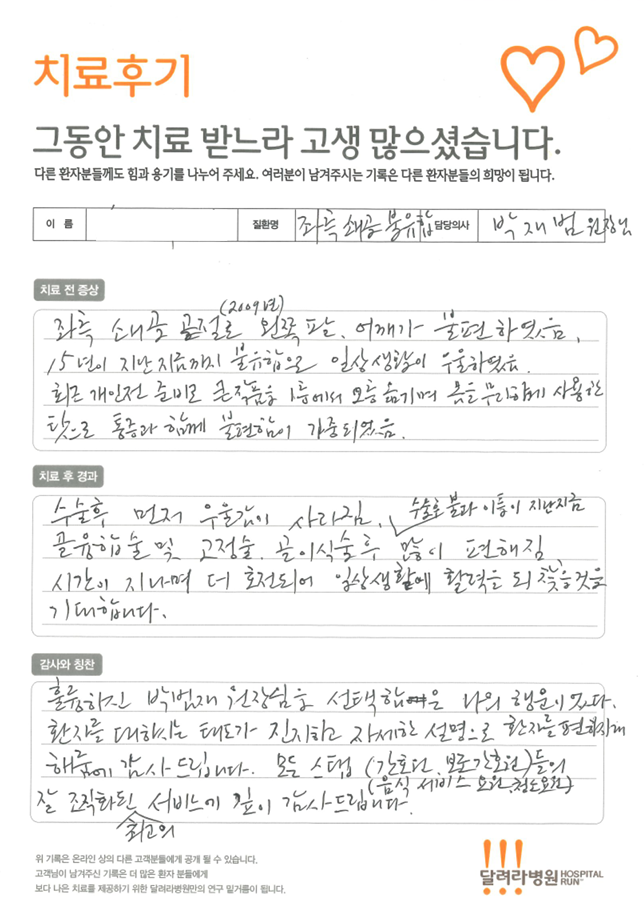 치료후기
그동안 치료 받느라 고생 많으셨습니다.
다른 환자분들께도 힘과 용기를 나누어 주세요. 여러분이 남겨주시는 기록은 다른 환자분들의 희망이 됩니다.
이 름 질환명 좌측 쇄골 불유합 담당의사 박재범 원장님
치료 전 증상
(2009년)
좌측 쇄골 골절로 왼쪽팔, 어깨가 불편하였음,
15년이 지난 지금까지 불유합으로 일상생활이 우울하였음.
최근 개인전 준비로 큰작품을 1층에서 오층 옮기며 몸을 무리하게 사용한
탓으로 통증과 함께 불편함이 가중되었음.
치료 후 경과
수술후 먼저 우울감이 사라짐, 수술후 불과 이틀이 지난지금
골융합술 및 고정술, 골이식술후 많이 편해짐
시간이 지나며 더 호전되어 일상생활에 활력을 되찾을것을
기대합니다.
감사와 칭찬
훌륭하신 박범재 원장님을 선택함은 나의 행운이었다.
환자를 대하시는 태도가 진지하고 자세한 설명으로 환자를 편하게
해줌에 감사드립니다. 모든 스탭 (간호원, 보조간호원)들의
(음식 서비스 요원, 청소요원)
잘 조직화된 서비스에 깊이 감사드립니다.
최고의
위 기록은 온라인 상의 다른 고객분들에게 공개 될 수 있습니다.
고객님이 남겨주신 기록은 더 많은 환자 분들에게
보다 나은 치료를 제공하기 위한 달려라병원만의 연구 밑거름이 됩니다.
달려라병원 HOSPITAL RUN